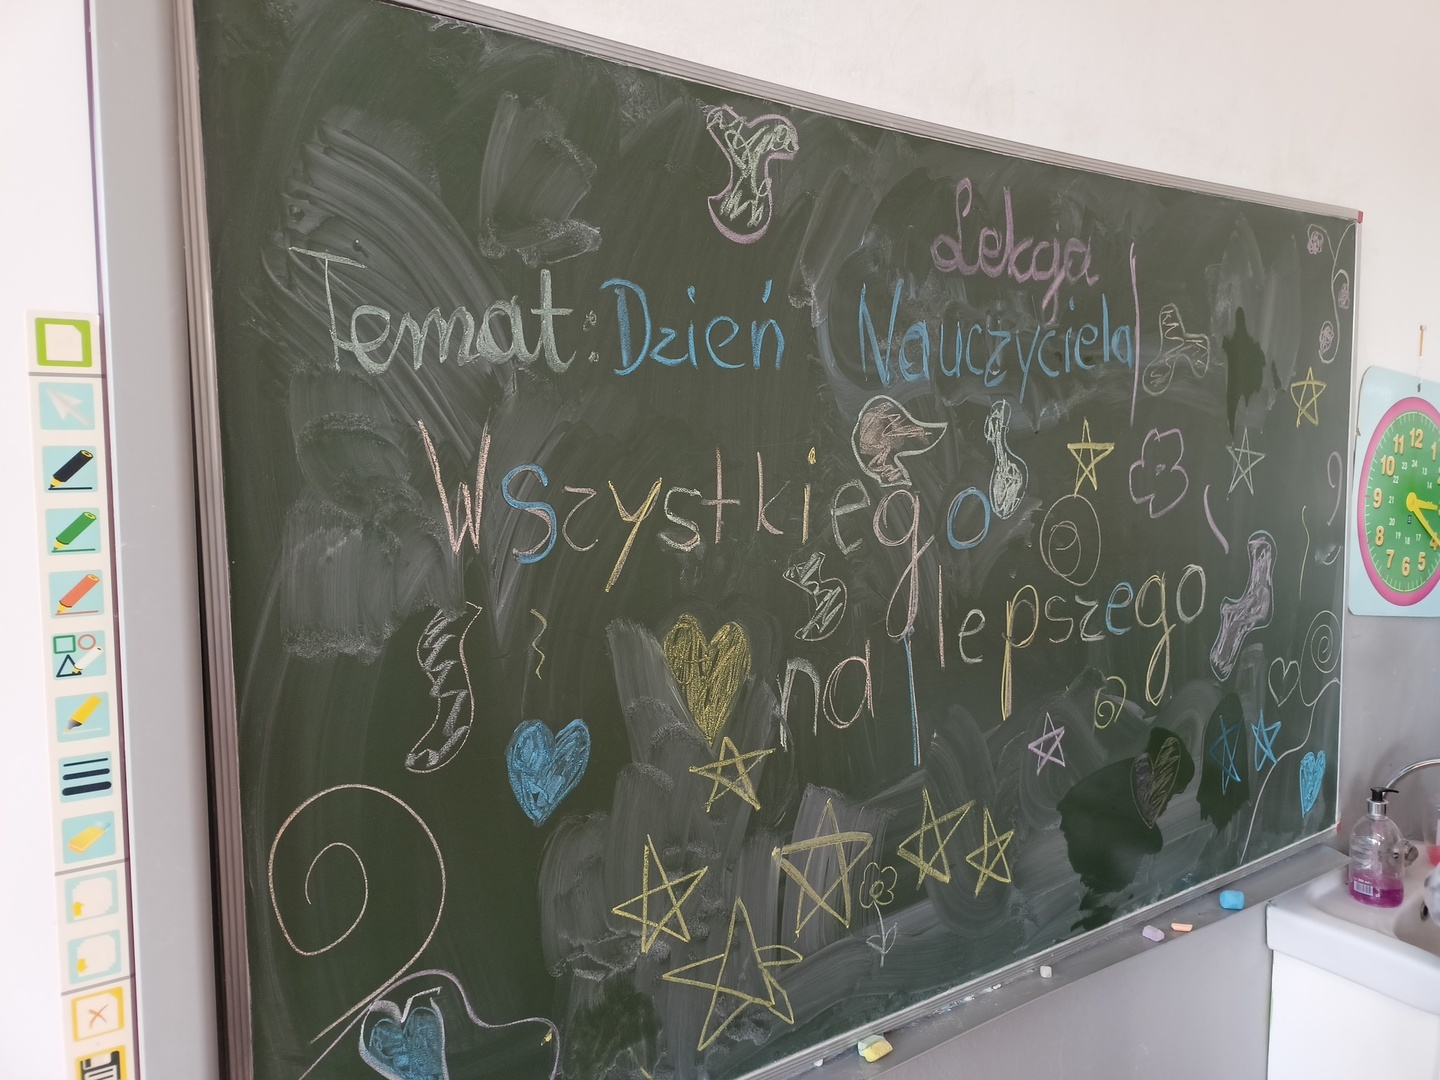 Lekcja
Temat: Dzień Nauczyciela
Wszystkiego
najlepszego
11 12 1
10
9
8
7 6 5